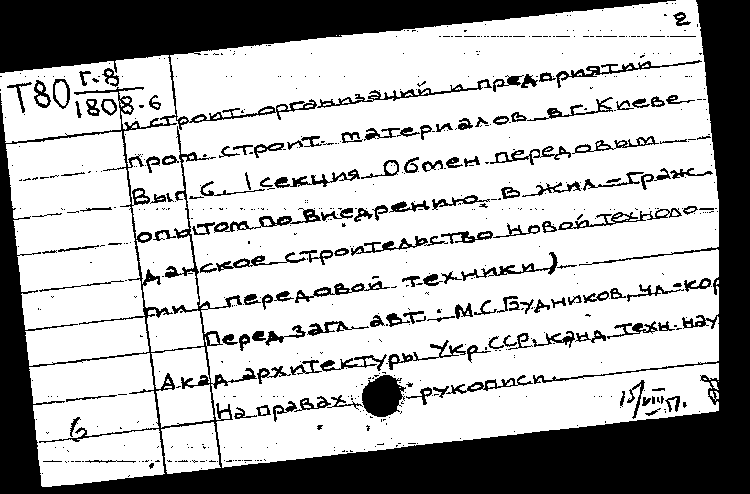 2
Т80 г-8
1808-6
и строит. организаций и предприятий
пром. строит. материалов в г. Киеве
Вып. 6. 1 секция. Обмен передовым
опытом по внедрению в жил.-граж-
данское строительство новой техноло-
гии и передовой техники)
Перед загл. авт.: М.С. Будников, чл.-кор
Акад. архитектуры Укр. ССР, канд. техн. нау
На правах рукописи.
6
15/VIII